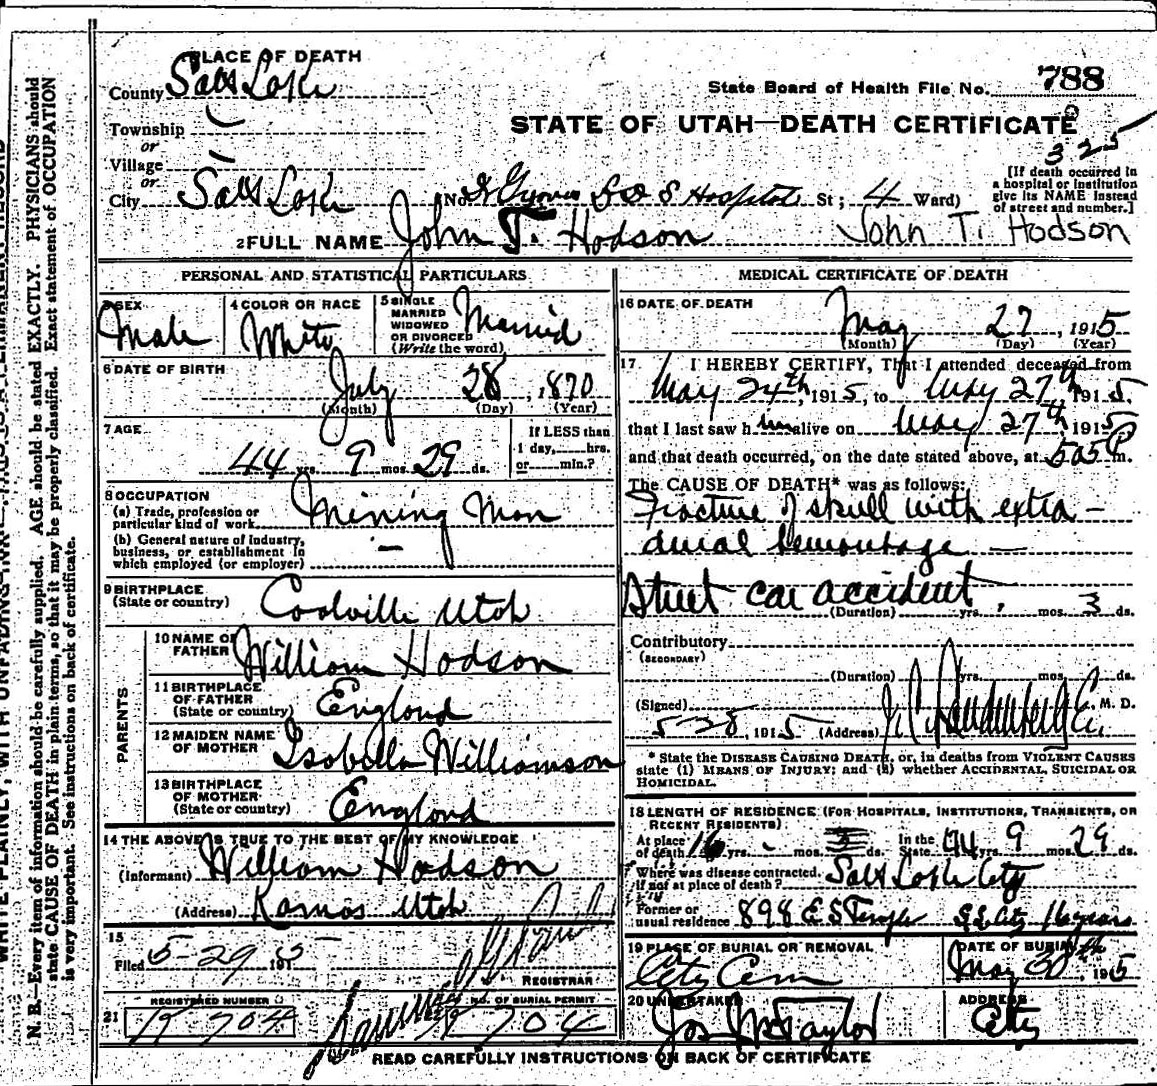 PLACE OF DEATH
County Salt Lake
State Board of Health File No. 788
Township
or
STATE OF UTAH—DEATH CERTIFICATE
325
Village
or
City Salt Lake (No. L D S Hospital St; 4 Ward)
[If death occurred in a hospital or institution give its NAME instead of street and number.]
2 FULL NAME John T. Hodson John T. Hodson
PERSONAL AND STATISTICAL PARTICULARS
3 SEX Male
4 COLOR OR RACE White
5 SINGLE MARRIED WIDOWED OR DIVORCED (Write the word) Married
6 DATE OF BIRTH July 28, 1870
(Month) (Day) (Year)
7 AGE 44 yrs. 9 mos. 29 ds.
If LESS than 1 day, hrs. or min.?
8 OCCUPATION
(a) Trade, profession or particular kind of work Mining Man
(b) General nature of industry, business, or establishment in which employed (or employer) —
9 BIRTHPLACE (State or country) Coalville Utah
PARENTS
10 NAME OF FATHER William Hodson
11 BIRTHPLACE OF FATHER (State or country) England
12 MAIDEN NAME OF MOTHER Isabella Williamson
13 BIRTHPLACE OF MOTHER (State or country) England
14 THE ABOVE IS TRUE TO THE BEST OF MY KNOWLEDGE
(Informant) William Hodson
(Address) Kamas Utah
15
Filed 5-29 1915
REGISTRAR
REGISTERED NUMBER
NO. OF BURIAL PERMIT
21
MEDICAL CERTIFICATE OF DEATH
16 DATE OF DEATH May 27, 1915
(Month) (Day) (Year)
17 I HEREBY CERTIFY, That I attended deceased from
May 24th 1915, to May 27th 1915,
that I last saw him alive on May 27th 1915
and that death occurred, on the date stated above, at 505 P m.
The CAUSE OF DEATH* was as follows:
Fracture of skull with extra-
dural hemorrhage —
Street car accident,
(Duration) yrs. mos. 3 ds.
Contributory
(SECONDARY)
(Duration) yrs. mos. ds.
(Signed) M. D.
5-28, 1915 (Address)
* State the DISEASE CAUSING DEATH, or, in deaths from VIOLENT CAUSES
state (1) MEANS OF INJURY; and (2) whether ACCIDENTAL, SUICIDAL OR
HOMICIDAL.
18 LENGTH OF RESIDENCE (FOR HOSPITALS, INSTITUTIONS, TRANSIENTS, OR
RECENT RESIDENTS)
At place of death 16 yrs. mos. ds. In the State 44 yrs. 9 mos. 29 ds.
Where was disease contracted, if not at place of death? Salt Lake City
Former or usual residence 898 E S Temple S L City 16 years
19 PLACE OF BURIAL OR REMOVAL City Cem
DATE OF BURIAL May 30th, 1915
20 UNDERTAKER Jos Wm Taylor
ADDRESS City
READ CAREFULLY INSTRUCTIONS ON BACK OF CERTIFICATE
N. B.—Every item of information should be carefully supplied. AGE should be stated EXACTLY. PHYSICIANS should
state CAUSE OF DEATH in plain terms, so that it may be properly classified. Exact statement of OCCUPATION
is very important. See instructions on back of certificate.